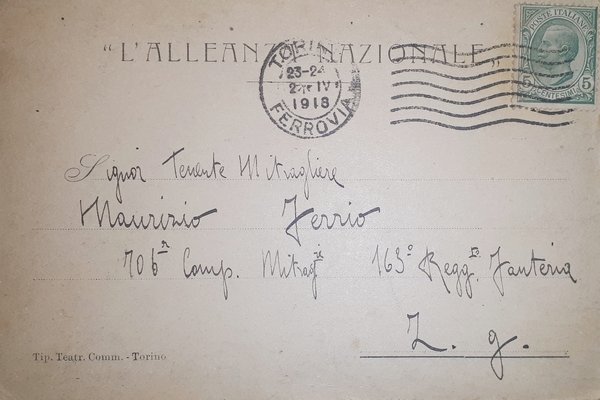 "L'ALLEANZA NAZIONALE"
POSTE ITALIANE
5 CENTESIMI 5
TORINO
23-24
IV
1918
FERROVIA
Signor Tenente Mitragliere
Maurizio Ferrio
706ª Comp. Mitragri 163º Regg. Fanteria
Z. g.
Tip. Teatr. Comm. - Torino